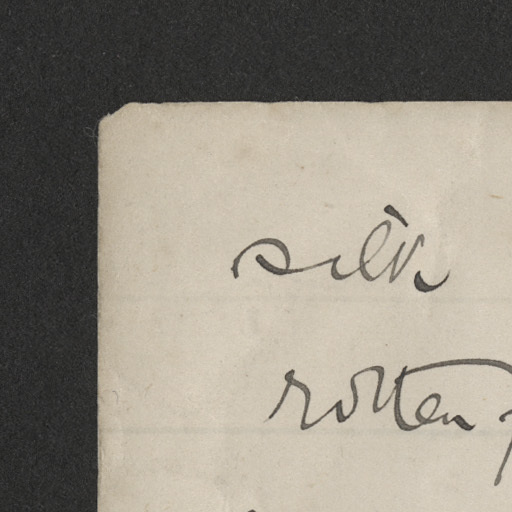 silk
rotten